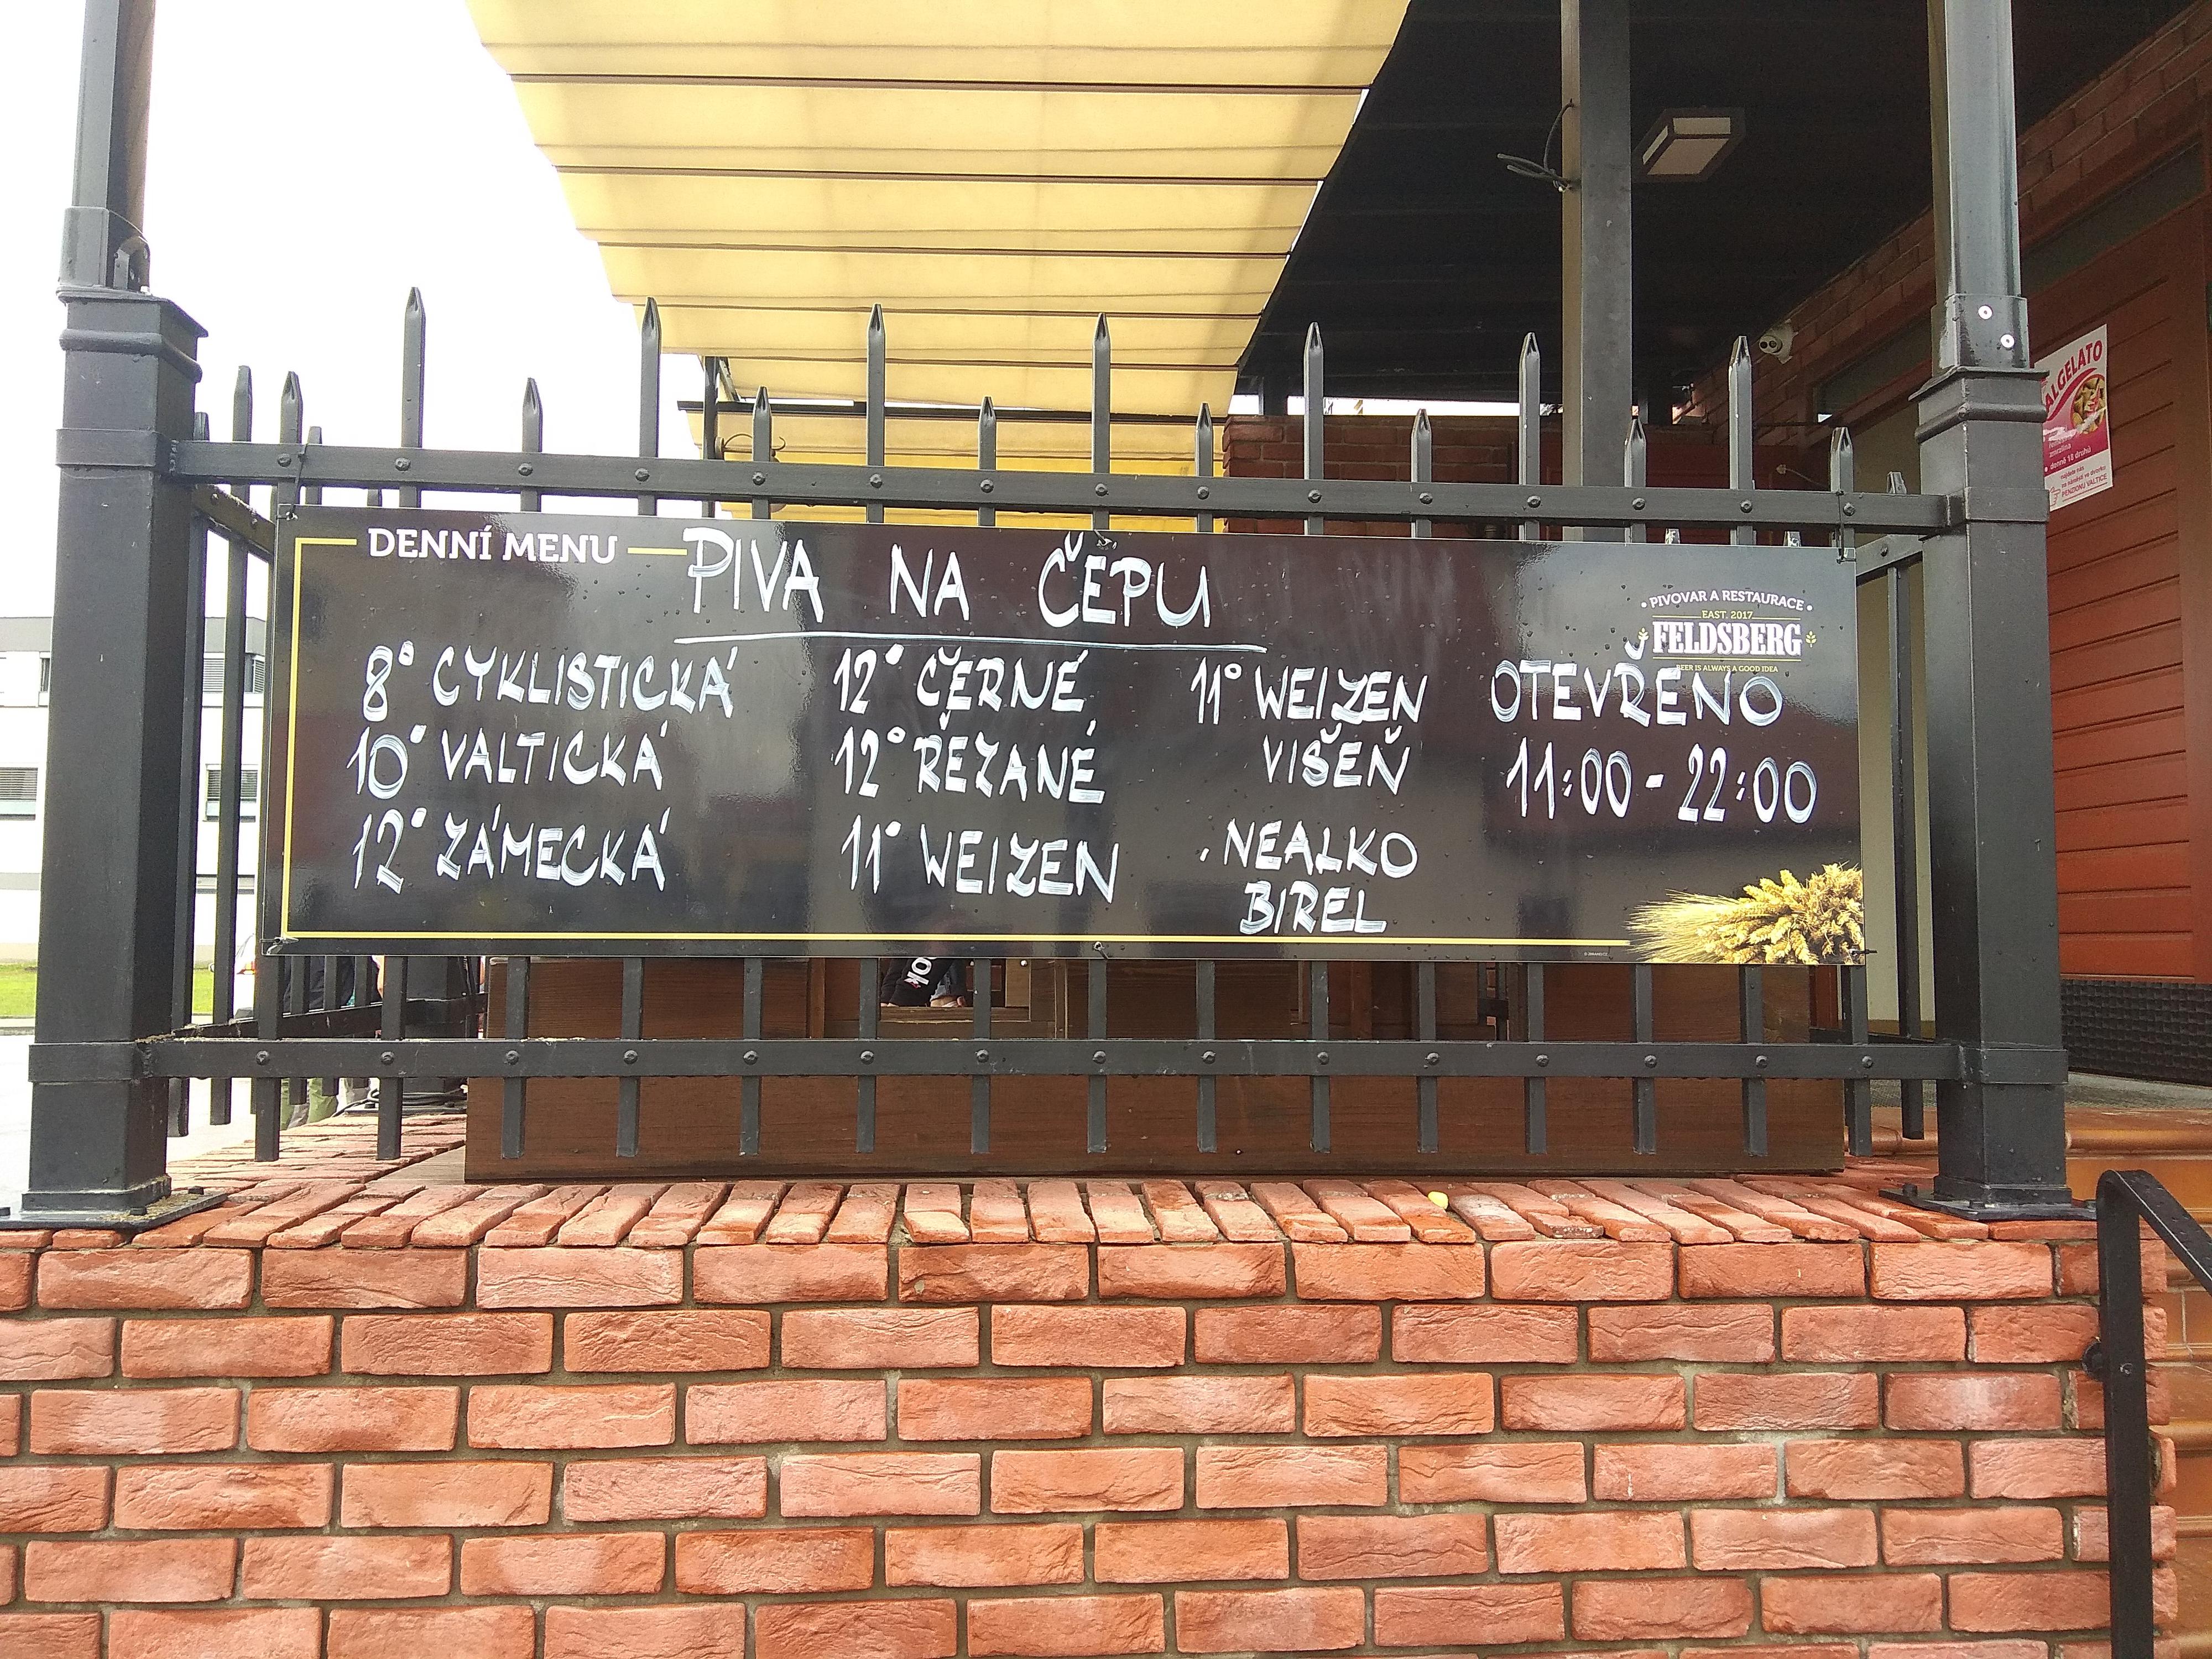 DENNÍ MENU
PIVA NA ČEPU
8° CYKLISTICKÁ
10° VALTICKÁ
12° ZÁMECKÁ
12° ČERNÉ
12° ŘEZANÉ
11° WEIZEN
11° WEIZEN
VIŠEŇ
NEALKO
BIREL
• PIVOVAR A RESTAURACE •
EAST. 2017
FELDSBERG
BEER IS ALWAYS A GOOD IDEA
OTEVŘENO
11:00 - 22:00
ALGELATO
zmrzlina
• denně 18 druhů
PENZIONU VALTICE